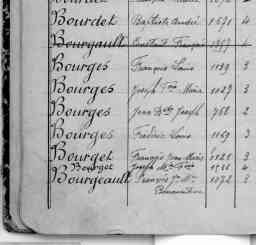 Bourdet Baptiste André 1571 4
Bourgault François
Bourges François Louis 1139 3
Bourges Joseph Fois Marie 1029 3
Bourges Jean Bte Joseph 768 2
Bourges Frédéric Louis 1169 3
Bourget François Jean Marie 1028 3
Bourget Joseph Me 4
Bourgeault François Me 1072 3
Bonaventure